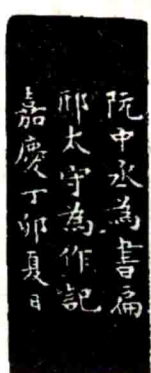 阮中丞為書扁
邴太守為作記
嘉慶丁卯夏日